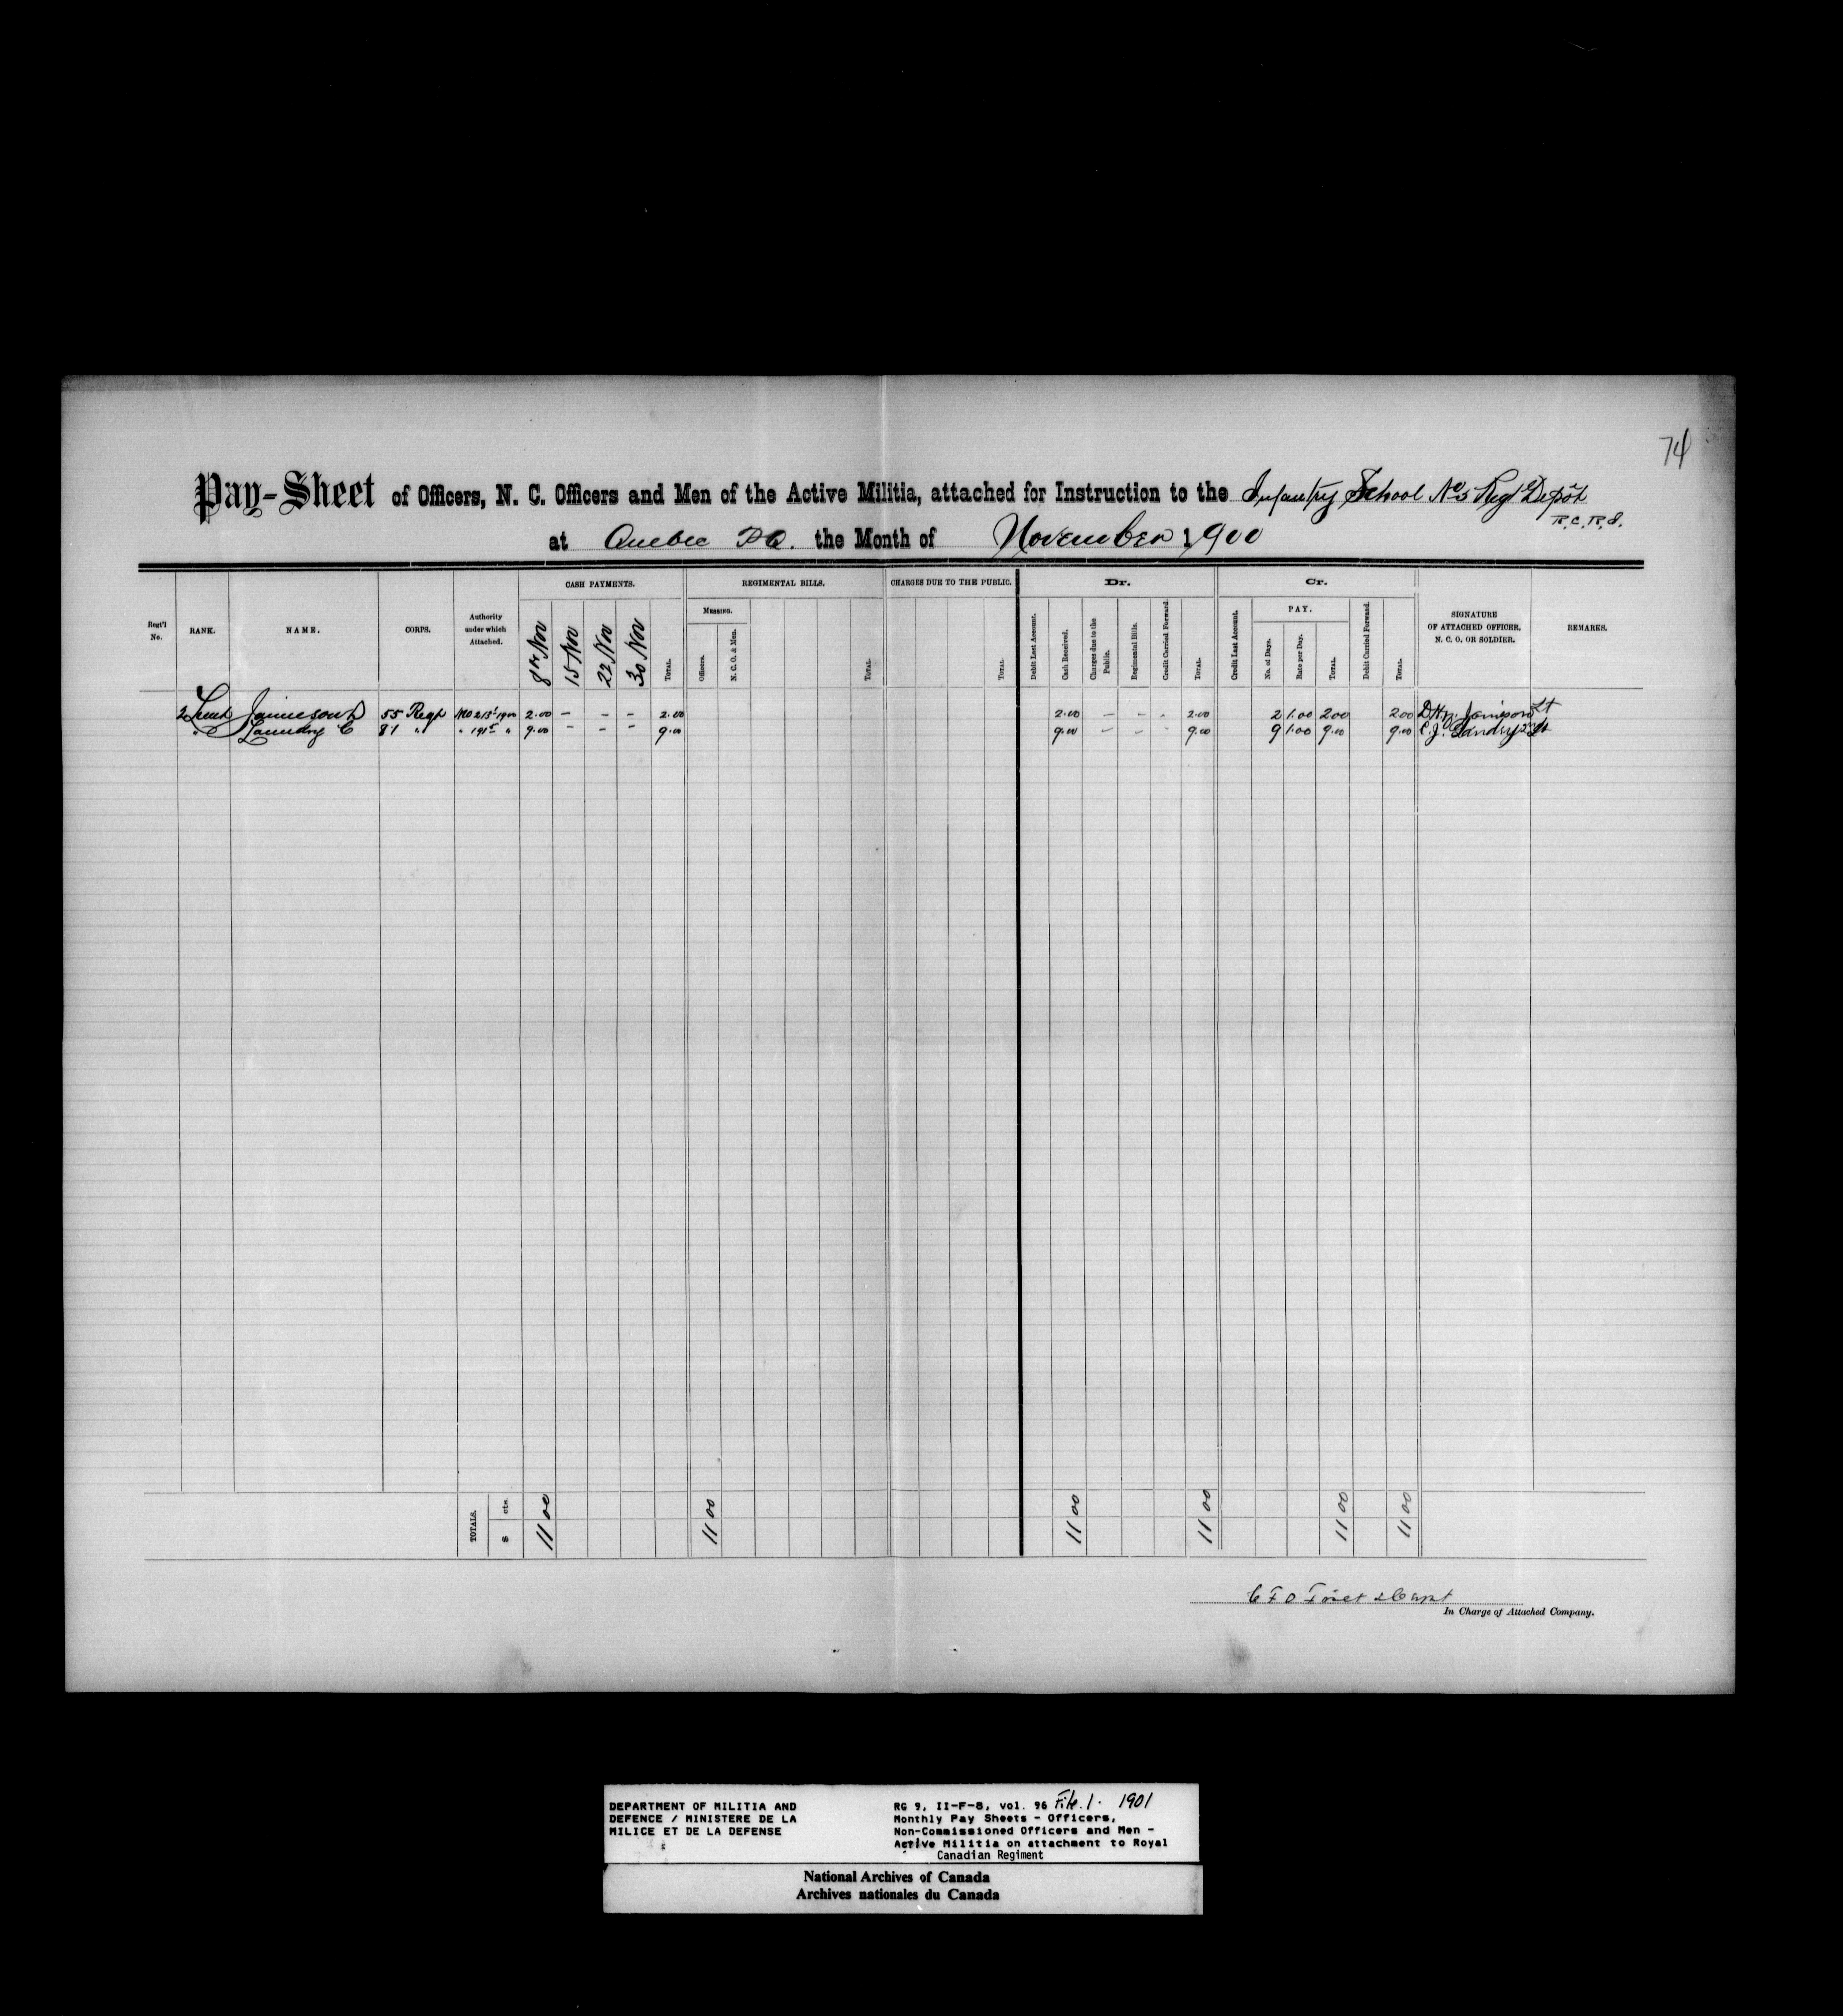 74
Pay-Sheet of Officers, N. C. Officers and Men of the Active Militia, attached for Instruction to the Infantry School No 5 Regtl Depôt
R.C.R.I.
at Quebec P.Q. the Month of November 1900
CASH PAYMENTS. REGIMENTAL BILLS. CHARGES DUE TO THE PUBLIC. Dr. Cr.
Regt'l No. RANK. NAME. CORPS. Authority under which Attached. 8th Nov 15 Nov 22 Nov 30 Nov TOTAL. MESSING. Officers. N. C. O. & Men. TOTAL. TOTAL Debit Last Account. Cash Received. Charges due to the Public. Regimental Bills. Credit Carried Forward. TOTAL. Credit Last Account. PAY. No. of Days. Rate per Day. TOTAL. Debit Carried Forward. TOTAL. SIGNATURE OF ATTACHED OFFICER, N. C. O. OR SOLDIER. REMARKS.
2 Lieut Jamieson D 55 Regt MO 213/1900 2.00 – – – 2.00 2.00 – – - 2.00 2 1.00 2.00 2.00 Jamieson Lt
" Landry C 81 " " 191 " 9.00 – – – 9.00 9.00 – – - 9.00 9 1.00 9.00 9.00 C.J. Landry 2nd Lt
TOTALS. $ cts. 11 00 11 00 11 00 11 00 11 00 11 00
In Charge of Attached Company.
DEPARTMENT OF MILITIA AND
DEFENCE / MINISTERE DE LA
MILICE ET DE LA DEFENSE
RG 9, II-F-8, vol. 96 File.1. 1901
Monthly Pay Sheets - Officers,
Non-Commissioned Officers and Men -
Active Militia on attachment to Royal
Canadian Regiment
National Archives of Canada
Archives nationales du Canada